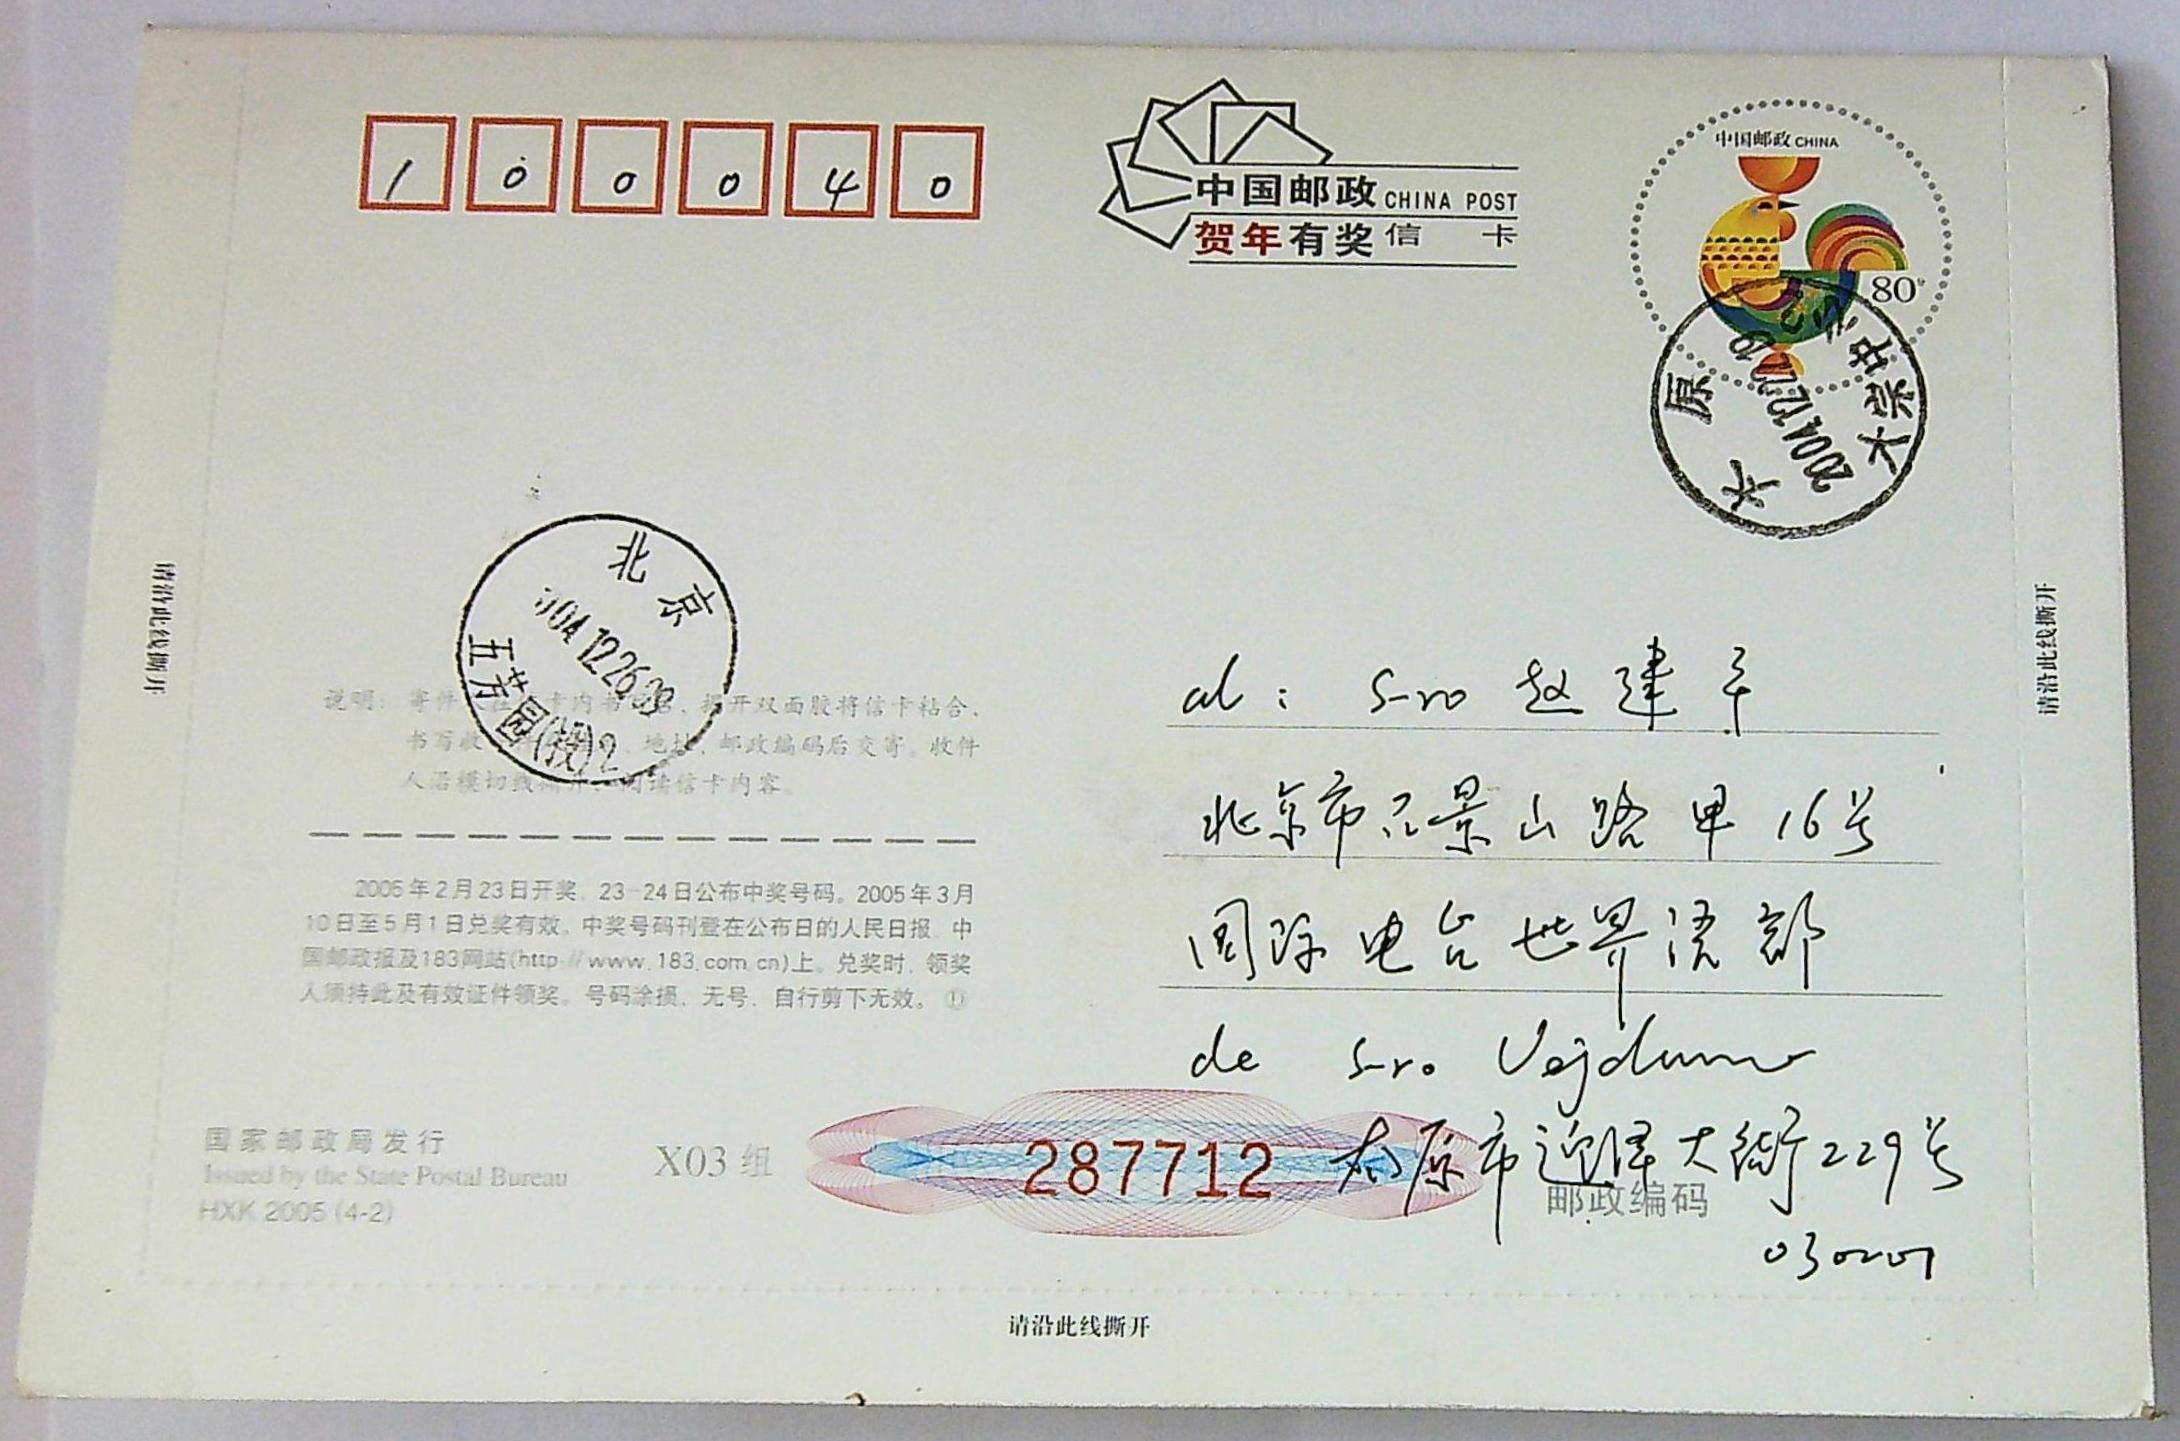 100040
中国邮政 CHINA POST
贺年有奖信 卡
中国邮政 CHINA
80
太原
2004.12.22
北京
004 12 26 09
五芳园(投)2
请沿此线撕开
请沿此线撕开
说明：寄件
卡内书
、揭开双面胶将信卡粘合、
书写收
、地址、邮政编码后交寄。收件
人沿模切线撕开
阅读信卡内容。
al: S-ro 赵建平
北京市石景山路甲16号
国际电台世界语部
de S-ro Vejdumo
太原市迎泽大街229号
030001
2005年2月23日开奖，23-24日公布中奖号码。2005年3月
10日至5月1日兑奖有效。中奖号码刊登在公布日的人民日报、中
国邮政报及183网站(http://www.183.com.cn)上。兑奖时，领奖
人须持此及有效证件领奖。号码涂损、无号、自行剪下无效。①
国家邮政局发行
Issued by the State Postal Bureau
HXK 2005 (4-2)
X03 组
287712
邮政编码
请沿此线撕开